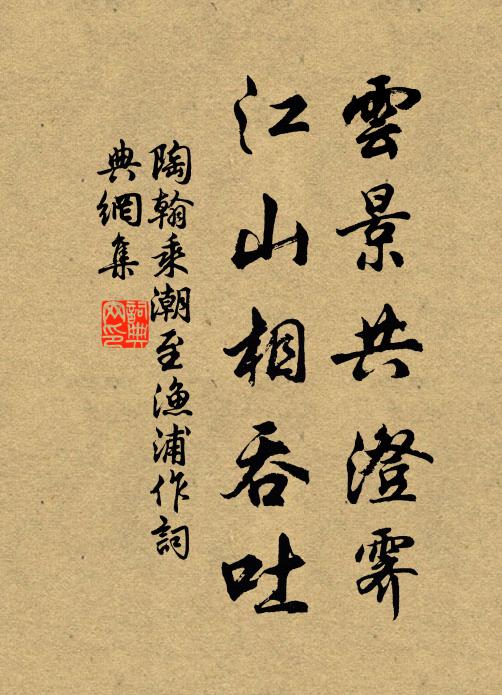 雲景共澄霽
江山相吞吐
陶翰乘潮至漁浦作詞
典網集
詞典
网印